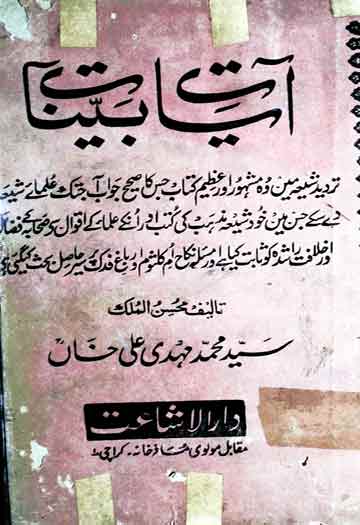 آیات بینات
تردید شیعہ میں وہ مشہور اور عظیم کتاب جس کا صحیح جواب آج تک علمائے شیعہ
نہ دے سکے جس میں خود شیعہ مذہب کی کتب اور انکے علماء کے اقوال سے صحابہ کے فضائل
اور خلافت راشدہ کو ثابت کیا ہے اور مسئلہ نکاح ام کلثوم اور باغ فدک پر سیر حاصل بحث کی گئی ہے
تالیف محسن الملک
سید محمد مہدی علی خاں
دارالاشاعت
مقابل مولوی مسافرخانہ - کراچی ۱